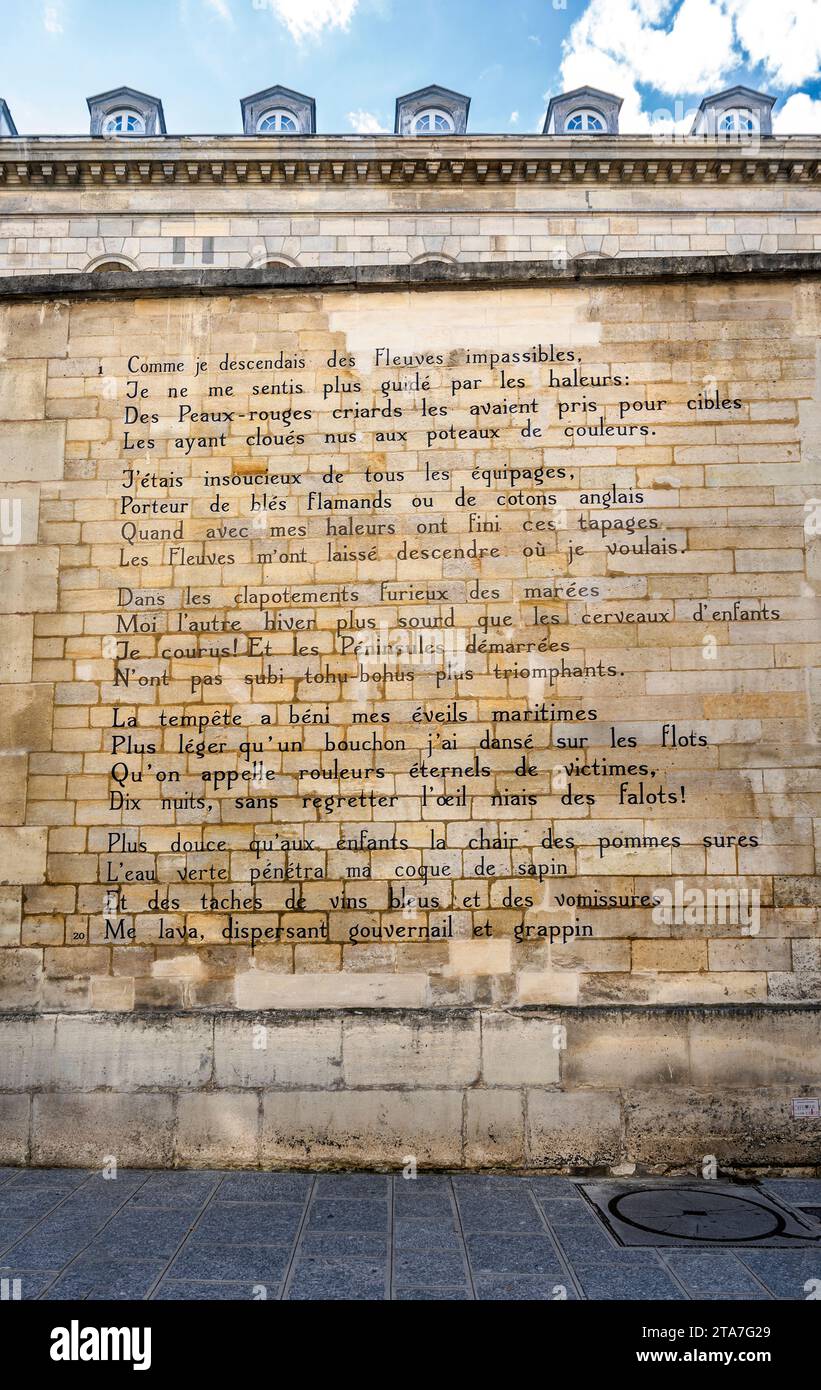 1 Comme je descendais des Fleuves impassibles,
Je ne me sentis plus guidé par les haleurs:
Des Peaux-rouges criards les avaient pris pour cibles
Les ayant cloués nus aux poteaux de couleurs.
J'étais insoucieux de tous les équipages,
Porteur de blés flamands ou de cotons anglais
Quand avec mes haleurs ont fini ces tapages
Les Fleuves m'ont laissé descendre où je voulais.
Dans les clapotements furieux des marées
Moi l'autre hiver plus sourd que les cerveaux d'enfants
Je courus! Et les Péninsules démarrées
N'ont pas subi tohu-bohus plus triomphants.
La tempête a béni mes éveils maritimes
Plus léger qu'un bouchon j'ai dansé sur les flots
Qu'on appelle rouleurs éternels de victimes,
Dix nuits, sans regretter l'œil niais des falots!
Plus douce qu'aux enfants la chair des pommes sures
L'eau verte pénétra ma coque de sapin
Et des taches de vins bleus et des vomissures
20 Me lava, dispersant gouvernail et grappin
alamy
Image ID: 2TA7G29
www.alamy.com